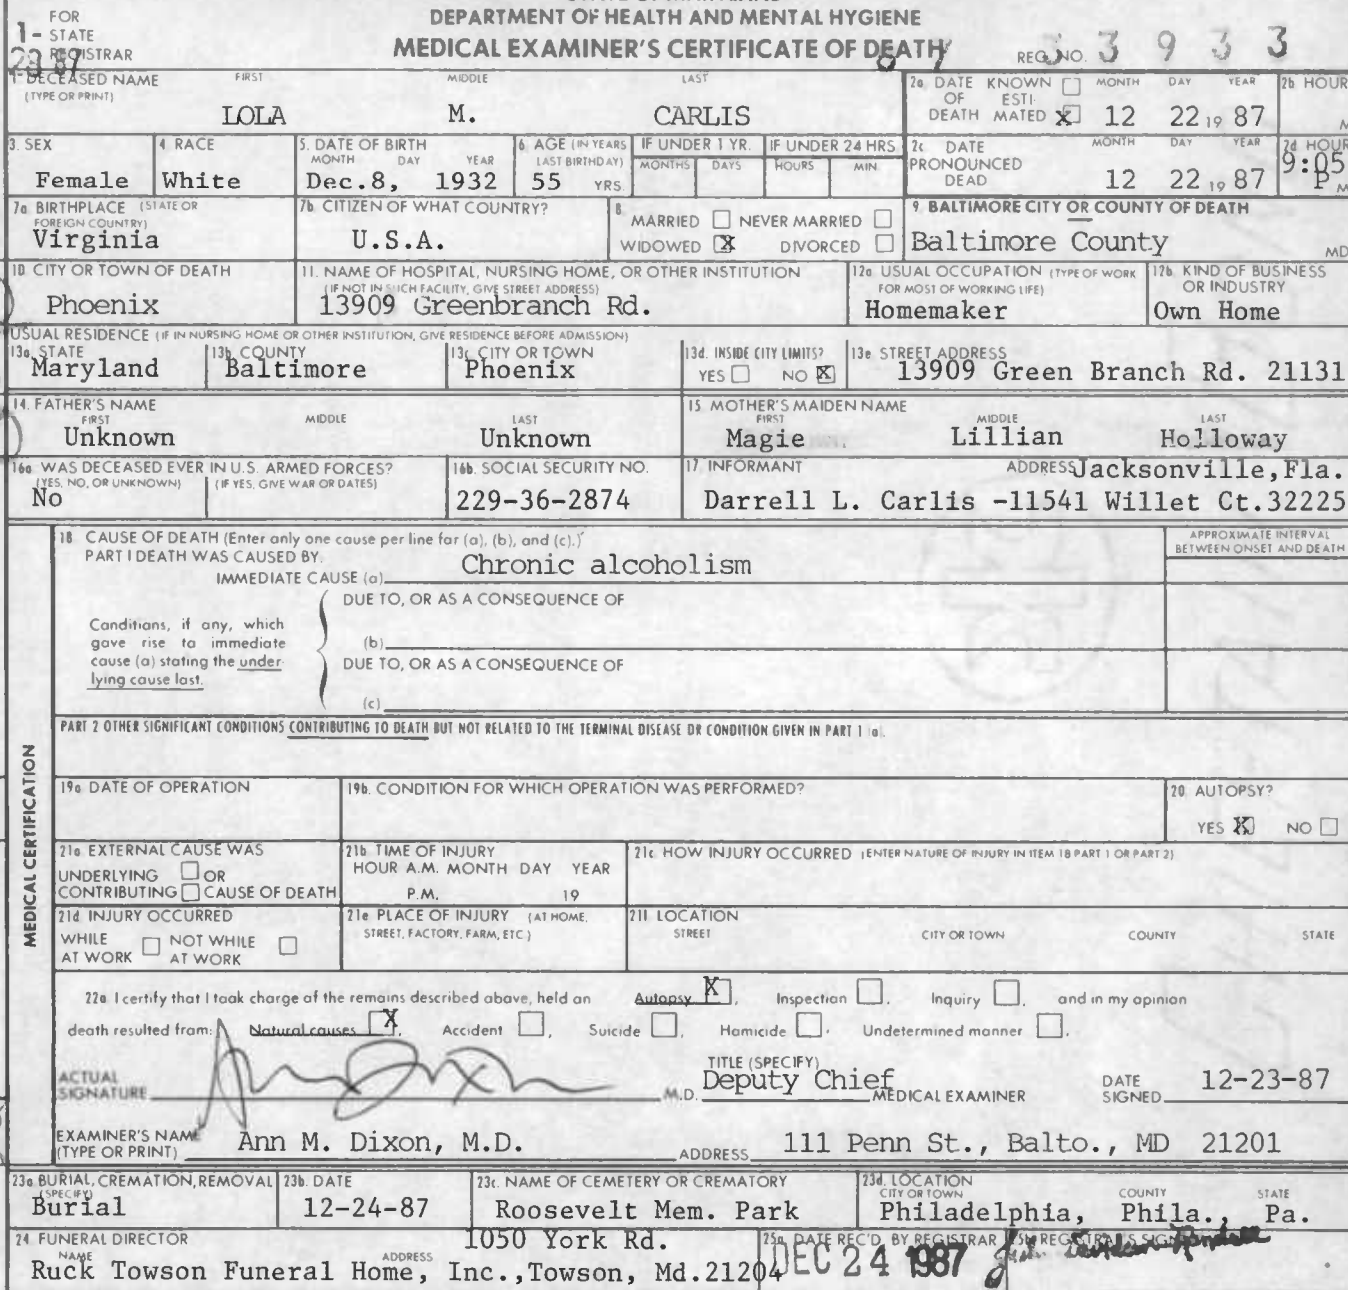 FOR
1- STATE
REGISTRAR
DEPARTMENT OF HEALTH AND MENTAL HYGIENE
MEDICAL EXAMINER'S CERTIFICATE OF DEATH
REG. NO. 33933
1. DECEASED NAME (TYPE OR PRINT) FIRST MIDDLE LAST
LOLA M. CARLIS
2a. DATE OF DEATH KNOWN ☐ ESTIMATED ☒ MONTH DAY YEAR
12 22 19 87
2b HOUR M
3. SEX
Female
4. RACE
White
5. DATE OF BIRTH MONTH DAY YEAR
Dec.8, 1932
6. AGE (IN YEARS LAST BIRTHDAY)
55 YRS.
IF UNDER 1 YR. MONTHS DAYS
IF UNDER 24 HRS HOURS MIN.
2c DATE PRONOUNCED DEAD MONTH DAY YEAR
12 22 19 87
2d HOUR
9:05 P M
7a BIRTHPLACE (STATE OR FOREIGN COUNTRY)
Virginia
7b. CITIZEN OF WHAT COUNTRY?
U.S.A.
8. MARRIED ☐ NEVER MARRIED ☐
WIDOWED ☒ DIVORCED ☐
9. BALTIMORE CITY OR COUNTY OF DEATH
Baltimore County MD
10. CITY OR TOWN OF DEATH
Phoenix
11. NAME OF HOSPITAL, NURSING HOME, OR OTHER INSTITUTION
(IF NOT IN SUCH FACILITY, GIVE STREET ADDRESS)
13909 Greenbranch Rd.
12a USUAL OCCUPATION (TYPE OF WORK FOR MOST OF WORKING LIFE)
Homemaker
12b. KIND OF BUSINESS OR INDUSTRY
Own Home
USUAL RESIDENCE (IF IN NURSING HOME OR OTHER INSTITUTION, GIVE RESIDENCE BEFORE ADMISSION)
13a. STATE
Maryland
13b. COUNTY
Baltimore
13c. CITY OR TOWN
Phoenix
13d. INSIDE CITY LIMITS?
YES ☐ NO ☒
13e. STREET ADDRESS
13909 Green Branch Rd. 21131
14. FATHER'S NAME FIRST MIDDLE LAST
Unknown Unknown
15. MOTHER'S MAIDEN NAME FIRST MIDDLE LAST
Magie Lillian Holloway
16a WAS DECEASED EVER IN U.S. ARMED FORCES?
(YES, NO, OR UNKNOWN) (IF YES, GIVE WAR OR DATES)
No
16b. SOCIAL SECURITY NO.
229-36-2874
17. INFORMANT ADDRESS Jacksonville,Fla.
Darrell L. Carlis -11541 Willet Ct.32225
MEDICAL CERTIFICATION
18 CAUSE OF DEATH (Enter only one cause per line for (a), (b), and (c).)
PART I DEATH WAS CAUSED BY:
IMMEDIATE CAUSE (a) Chronic alcoholism
APPROXIMATE INTERVAL
BETWEEN ONSET AND DEATH
DUE TO, OR AS A CONSEQUENCE OF
Conditions, if any, which
gave rise to immediate
cause (a) stating the under
lying cause last.
(b)
DUE TO, OR AS A CONSEQUENCE OF
(c)
PART 2 OTHER SIGNIFICANT CONDITIONS CONTRIBUTING TO DEATH BUT NOT RELATED TO THE TERMINAL DISEASE OR CONDITION GIVEN IN PART 1 (a).
19a. DATE OF OPERATION
19b. CONDITION FOR WHICH OPERATION WAS PERFORMED?
20. AUTOPSY?
YES ☒ NO ☐
21a EXTERNAL CAUSE WAS
UNDERLYING ☐ OR
CONTRIBUTING ☐ CAUSE OF DEATH
21b TIME OF INJURY
HOUR A.M. MONTH DAY YEAR
P.M. 19
21c HOW INJURY OCCURRED (ENTER NATURE OF INJURY IN ITEM 18 PART 1 OR PART 2)
21d INJURY OCCURRED
WHILE AT WORK ☐ NOT WHILE AT WORK ☐
21e PLACE OF INJURY (AT HOME, STREET, FACTORY, FARM, ETC.)
21f LOCATION
STREET CITY OR TOWN COUNTY STATE
22a. I certify that I took charge of the remains described above, held an Autopsy ☒, Inspection ☐, Inquiry ☐, and in my opinion
death resulted from: Natural causes ☒, Accident ☐, Suicide ☐, Homicide ☐, Undetermined manner ☐.
ACTUAL SIGNATURE M.D.
TITLE (SPECIFY)
Deputy Chief MEDICAL EXAMINER
DATE SIGNED 12-23-87
EXAMINER'S NAME (TYPE OR PRINT) Ann M. Dixon, M.D.
ADDRESS 111 Penn St., Balto., MD 21201
23a BURIAL, CREMATION, REMOVAL (SPECIFY)
Burial
23b. DATE
12-24-87
23c. NAME OF CEMETERY OR CREMATORY
Roosevelt Mem. Park
23d. LOCATION
CITY OR TOWN COUNTY STATE
Philadelphia, Phila., Pa.
24. FUNERAL DIRECTOR
NAME ADDRESS 1050 York Rd.
Ruck Towson Funeral Home, Inc.,Towson, Md.21204
25a. DATE REC'D. BY REGISTRAR
DEC 24 1987
25b. REGISTRAR'S SIGNATURE